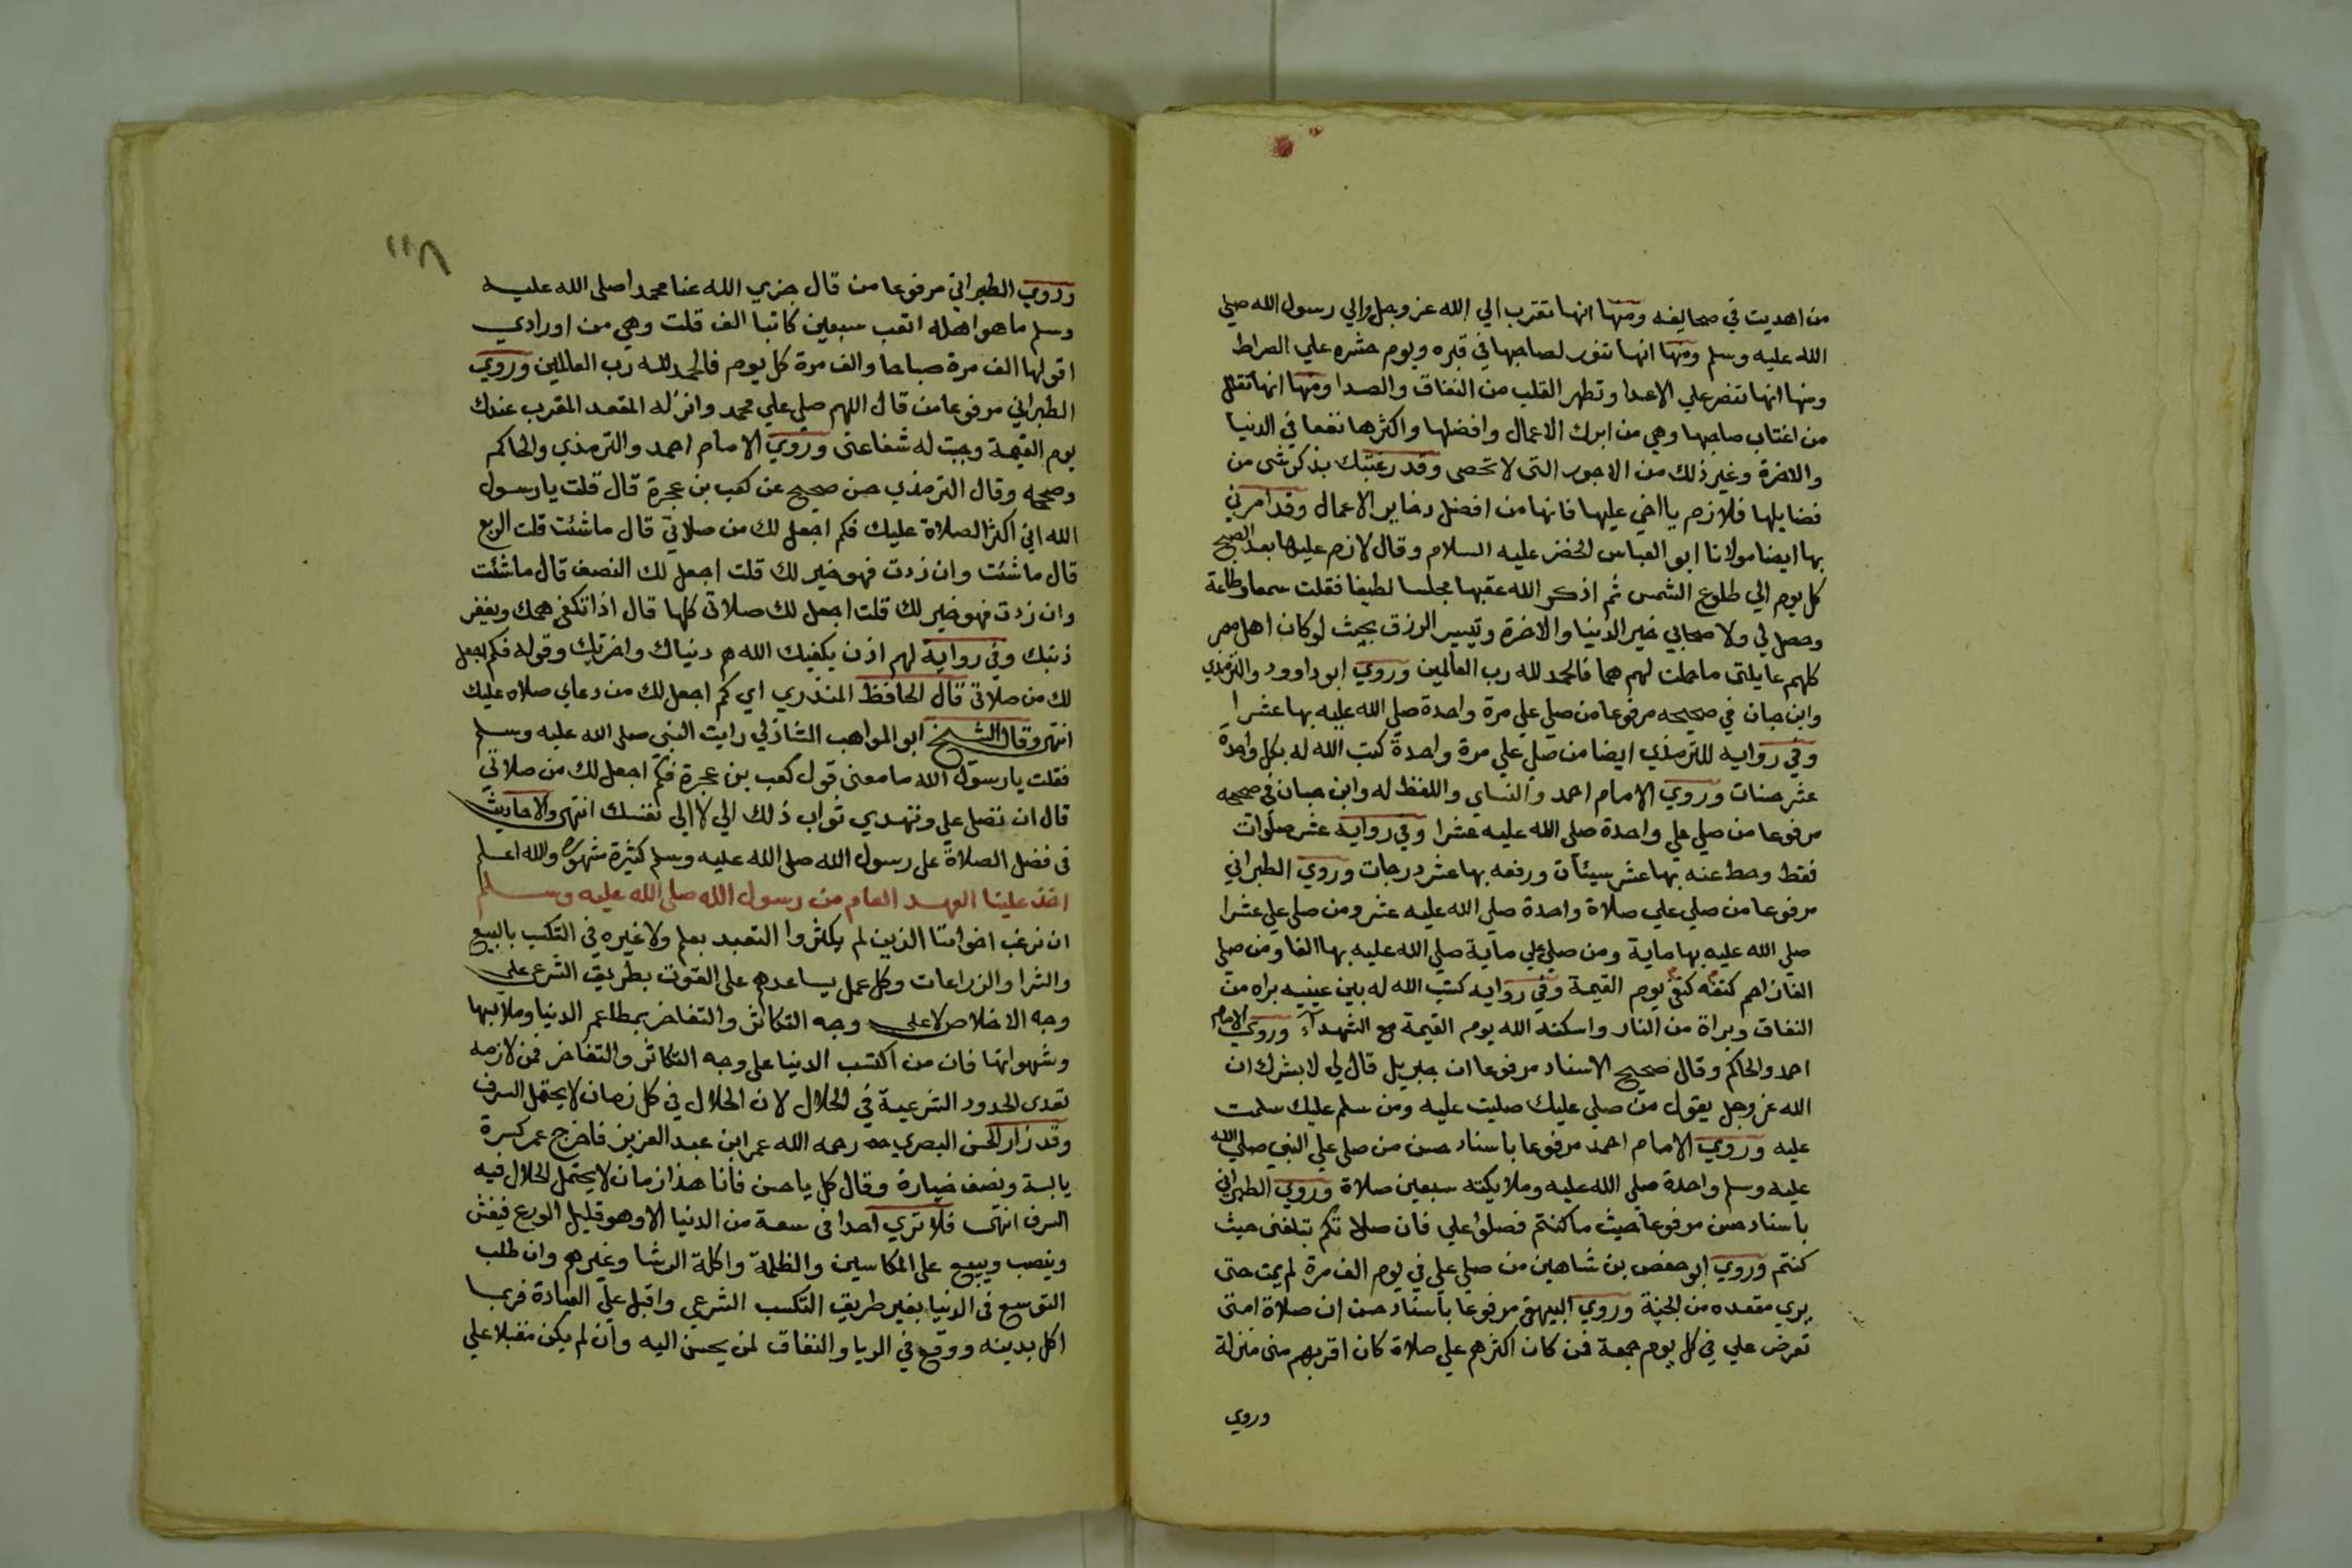 من اهديت في صحايفه ومنها انها تقرب الي الله عز وجل والي رسول الله صلي
الله عليه وسلم ومنها انها تنور لصاحبها في قبره ويوم حشره علي الصراط
ومنها انها تنصر علي الاعدا وتطهر القلب من النفاق والصدا ومنها انها تقلل
من اغتاب صاحبها وهي من ابرك الاعمال وافضلها واكثرها نفعا في الدنيا
والاخرة وغير ذلك من الاجور التي لا تحصى وقد رغبتك بذكر شي من
فضايلها فلازم يا اخي عليها فانها من افضل دخاير الاعمال وقد امرني
بها ايضا مولانا ابو العباس الخضر عليه السلام وقال لازم عليها بعد الصبح
كل يوم الي طلوع الشمس ثم اذكر الله عقبها مجلسا لطيفا فقلت سمعا وطاعة
وحصل لي ولاصحابي خير الدنيا والاخرة وتيسير الرزق بحيث لو كان اهل مصر
كلهم عايلتى ما حملت لهم هما فالحمد لله رب العالمين وروي ابو داوود والترمذي
وابن حبان في صحيحه مرفوعا من صلي علي مرة واحدة صلي الله عليه بها عشرا
وفي روايه للترمذي ايضا من صلي علي مرة واحدة كتب الله له بكل واحدة
عشر حسنات وروي الامام احمد والنساي واللفظ له وابن حبان في صحيحه
مرفوعا من صلي علي واحدة صلي الله عليه عشرا وفي رواية عشر صلوات
فقط وحط عنه بها عشر سيئات ورفعه بها عشر درجات وروي الطبراني
مرفوعا من صلي علي صلاة واحدة صلي الله عليه عشر ومن صلي علي عشرا
صلي الله عليه بها ماية ومن صلي علي ماية صلي الله عليه بها الفا ومن صلي
الفا زاحم كتفه كتفي يوم القيمة وفي رواية كتب الله له بين عينيه براه من
النفاق وبراة من النار واسكنه الله يوم القيمة مع الشهدآء وروي الامام
احمد والحاكم وقال صحيح الاسناد مرفوعا ان جبريل قال لي لابشرك ان
الله عز وجل يقول من صلي عليك صليت عليه ومن سلم عليك سلمت
عليه وروي الامام احمد مرفوعا باسناد حسن من صلي علي النبي صلي الله
عليه وسلم واحدة صلي الله عليه وملايكته سبعين صلاة وروي الطبراني
باسناد حسن مرفوعا حيث ما كنتم فصلوا علي فان صلاتكم تبلغنى حيث
كنتم وروي ابو حفص بن شاهين من صلي علي في يوم الف مرة لم يمت حتى
يري مقعده من الجنة وروي البيهقى مرفوعا باسناد حسن ان صلاة امتى
تعرض علي في كل يوم جمعة فمن كان اكثرهم علي صلاة كان اقربهم منى منزلة
وروي
١١٨
وروي الطبراني مرفوعا من قال جزي الله عنا محمدا صلى الله عليه
وسلم ما هو اهله اتعب سبعين كاتبا الف قلت وهي من اورادي
اقولها الف مرة صباحا والف مرة كل يوم فالحمد لله رب العالمين وروي
الطبراني مرفوعا من قال اللهم صلي علي محمد وانزله المقعد المقرب عندك
يوم القيمة وجبت له شفاعتى وروي الامام احمد والترمذي والحاكم
وصححه وقال الترمذي حسن صحيح عن كعب بن عجرة قال قلت يا رسول
الله اني اكثر الصلاة عليك فكم اجعل لك من صلاتي قال ما شئت قلت الربع
قال ما شئت وان زدت فهو خير لك قلت اجعل لك النصف قال ما شئت
وان زدت فهو خير لك قلت اجعل لك صلاتى كلها قال اذا تكفى همك ويغفر
ذنبك وفي رواية لهم اذن يكفيك الله هم دنياك واخرتك وقوله فكم اجعل
لك من صلاتى قال الحافظ المنذري اي كم اجعل لك من دعاي صلاه عليك
انتهى وقال الشيخ ابو المواهب الشاذلي رايت النبى صلى الله عليه وسلم
فقلت يا رسول الله ما معنى قول كعب بن عجرة فكم اجعل لك من صلاتي
قال ان تصلى علي وتهدي ثواب ذلك الي لا الى نفسك انتهى والاحاديث
فى فضل الصلاة على رسول الله صلى الله عليه وسلم كثيرة مشهوره والله اعلم
اخذ علينا العهد العام من رسول الله صلى الله عليه وسلم
ان نرغب اخواننا الذين لم يكثروا التعبد بعلم ولا غيره في التكسب بالبيع
والشرا والزراعات وكل عمل يساعدهم على القوت بطريق الشرع على
وجه الاخلاص لا على وجه التكاثر والتفاخر بمطاعم الدنيا وملابسها
وشهواتها فان من اكتسب الدنيا على وجه التكاثر والتفاخر فمن لازمه
تعدى الحدود الشرعية في الحلال لان الحلال في كل زمان لا يحتمل السرف
وقد زار الحسن البصري رحمه الله عمر ابن عبد العزيز فاخرج عمر كسرة
يابسة ونصف خيارة وقال كل يا حسن فانا هذا زمان لا يحتمل الحلال فيه
السرف انتهى فلا تري احدا في سعة من الدنيا الا وهو قليل الورع فيغش
وينصب ويبيع على المكاسين والظلمة واكلة الرشا وغيرهم وان طلب
التوسع فى الدنيا بغير طريق التكسب الشرعي واقبل علي العبادة فربما
اكل بدينه ووقع في الريا والنفاق لمن يحسن اليه وان لم يكن مقبلا علي